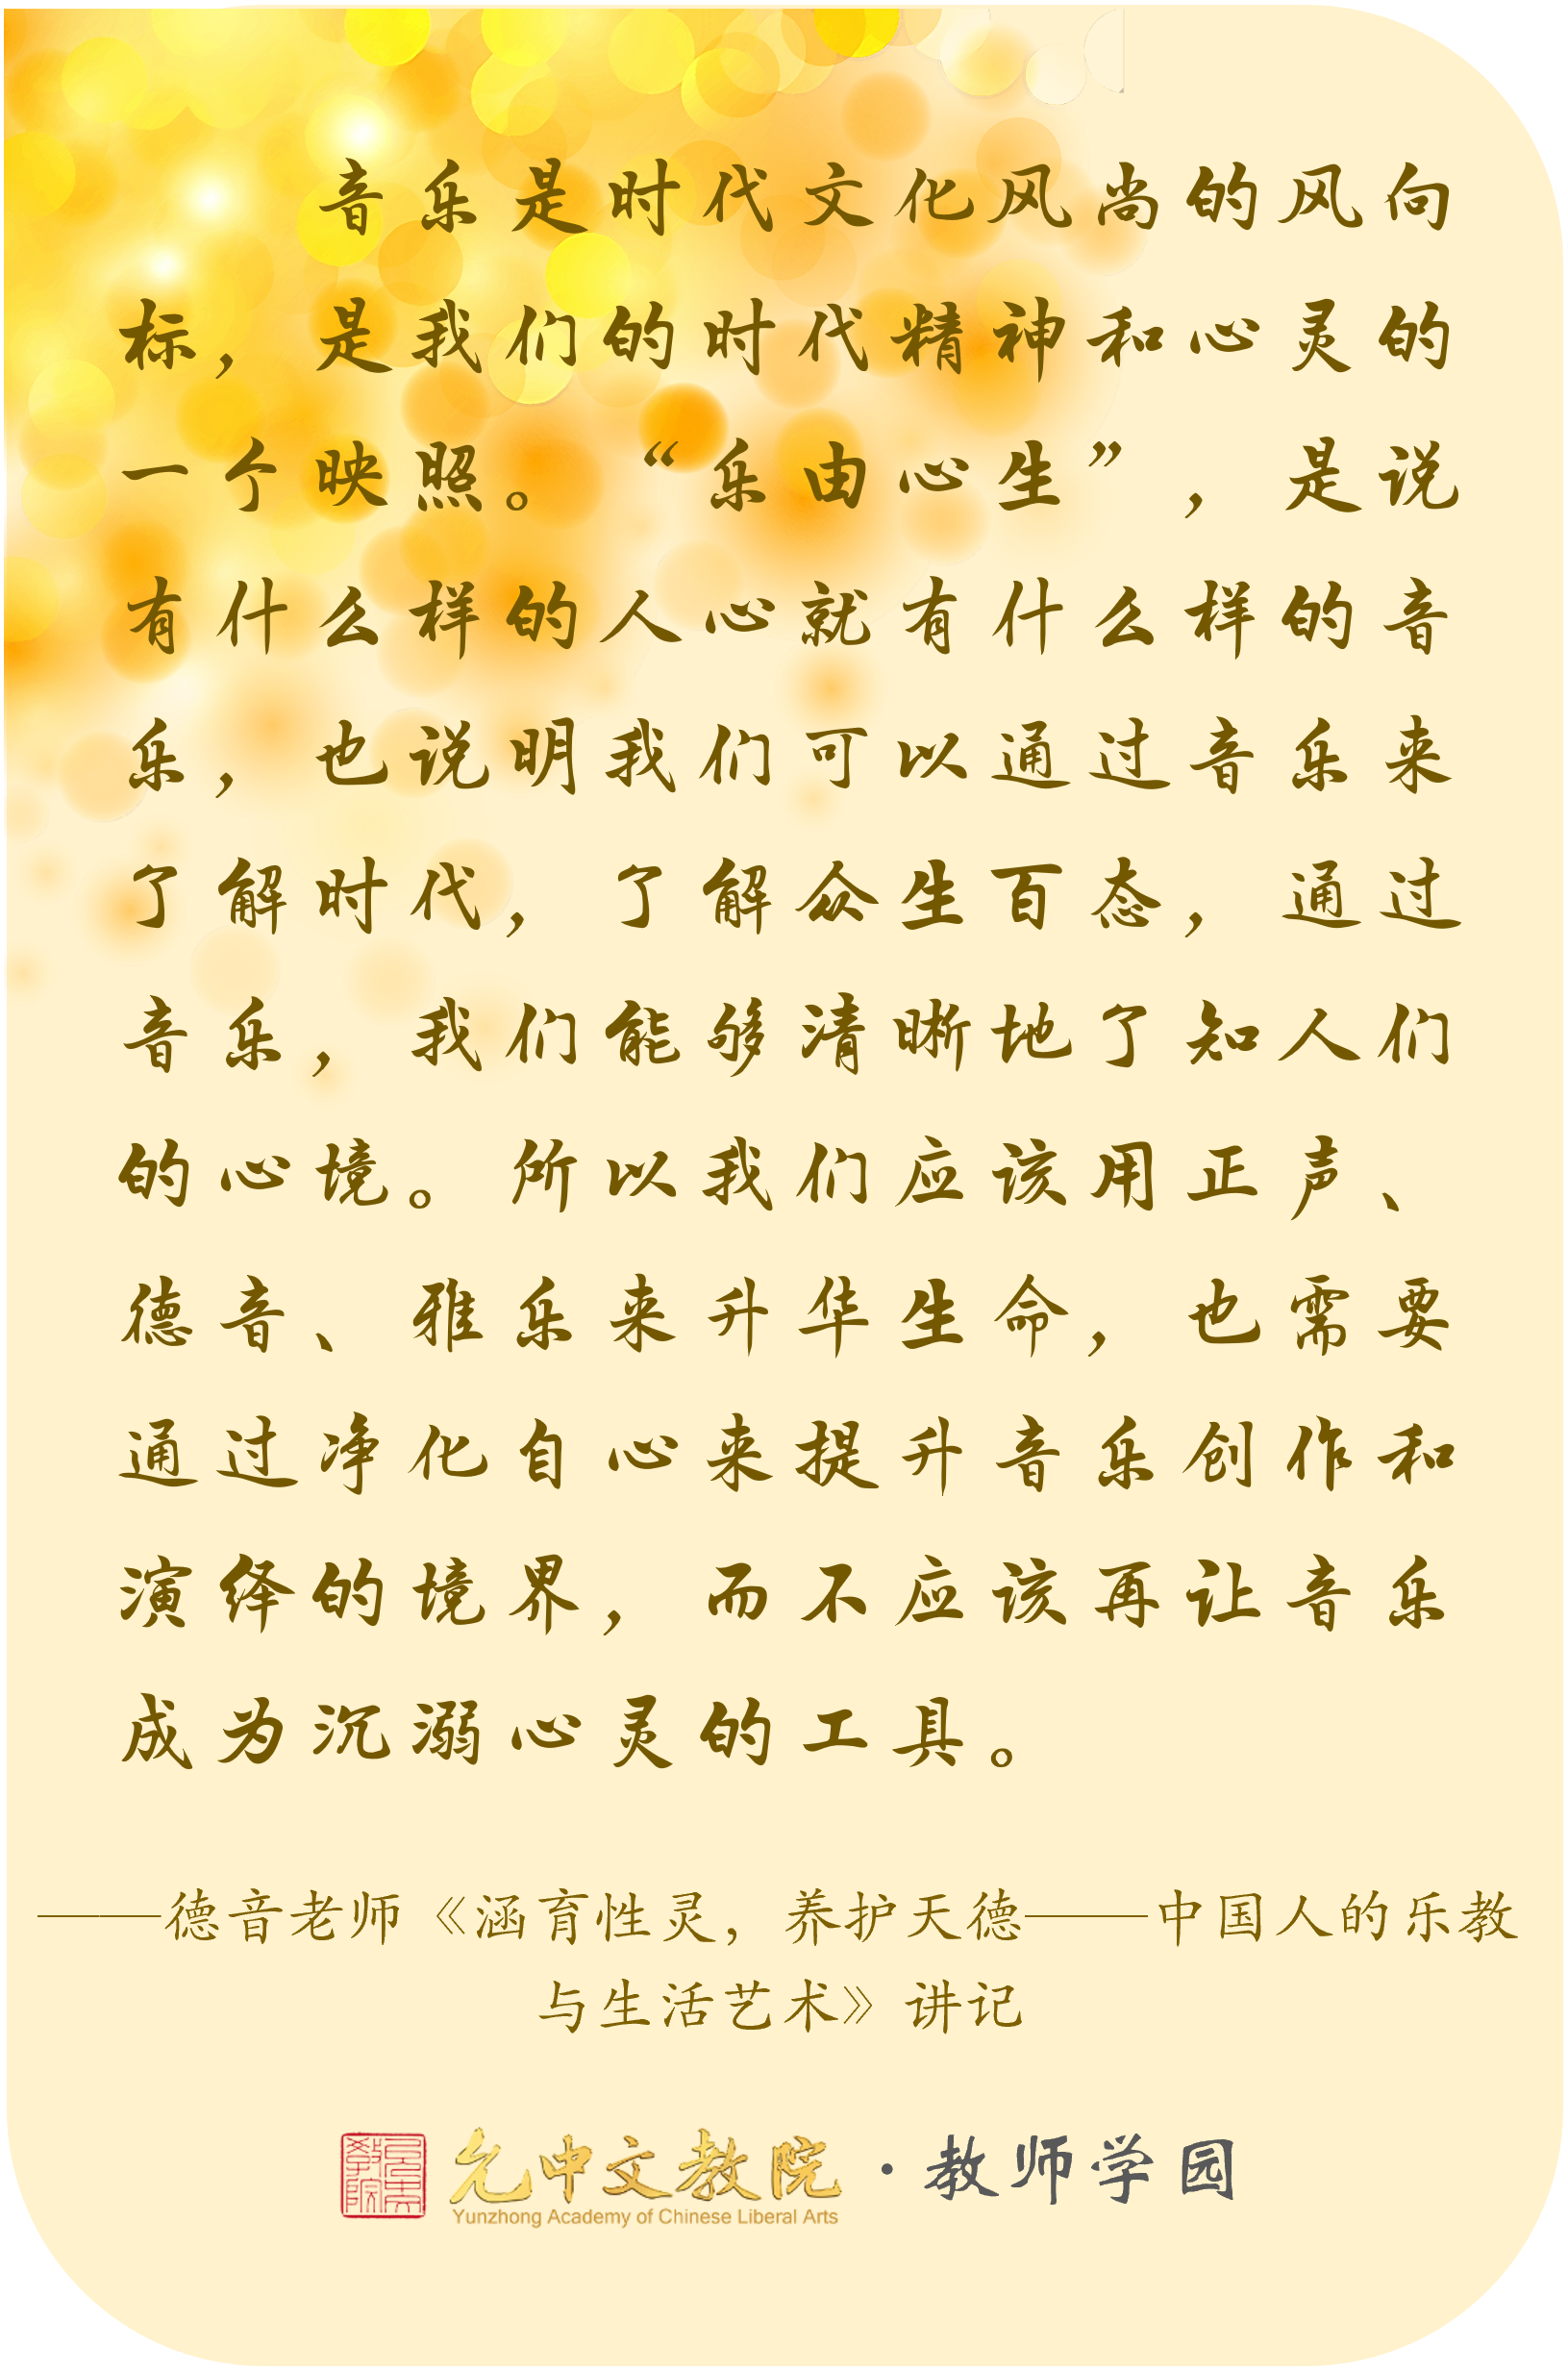 音乐是时代文化风尚的风向
标，是我们的时代精神和心灵的
一个映照。“乐由心生”，是说
有什么样的人心就有什么样的音
乐，也说明我们可以通过音乐来
了解时代，了解众生百态，通过
音乐，我们能够清晰地了知人们
的心境。所以我们应该用正声、
德音、雅乐来升华生命，也需要
通过净化自心来提升音乐创作和
演绎的境界，而不应该再让音乐
成为沉溺心灵的工具。
——德音老师《涵育性灵，养护天德——中国人的乐教
与生活艺术》讲记
允中文教院·教师学园
Yunzhong Academy of Chinese Liberal Arts